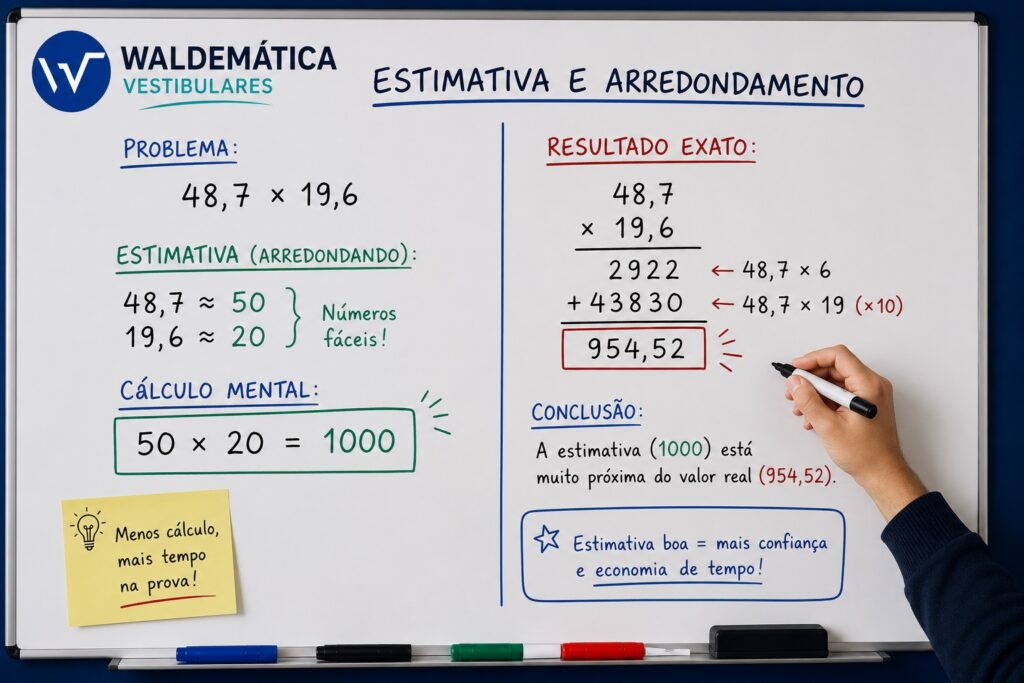 WALDEMÁTICA
VESTIBULARES
ESTIMATIVA E ARREDONDAMENTO
PROBLEMA:
48,7 × 19,6
ESTIMATIVA (ARREDONDANDO):
48,7 ≈ 50
19,6 ≈ 20
Números
fáceis!
CÁLCULO MENTAL:
50 × 20 = 1000
Menos cálculo,
mais tempo
na prova!
RESULTADO EXATO:
48,7
× 19,6
2922 ← 48,7 × 6
+ 43830 ← 48,7 × 19 (×10)
954,52
CONCLUSÃO:
A estimativa (1000) está
muito próxima do valor real (954,52).
Estimativa boa = mais confiança
e economia de tempo!